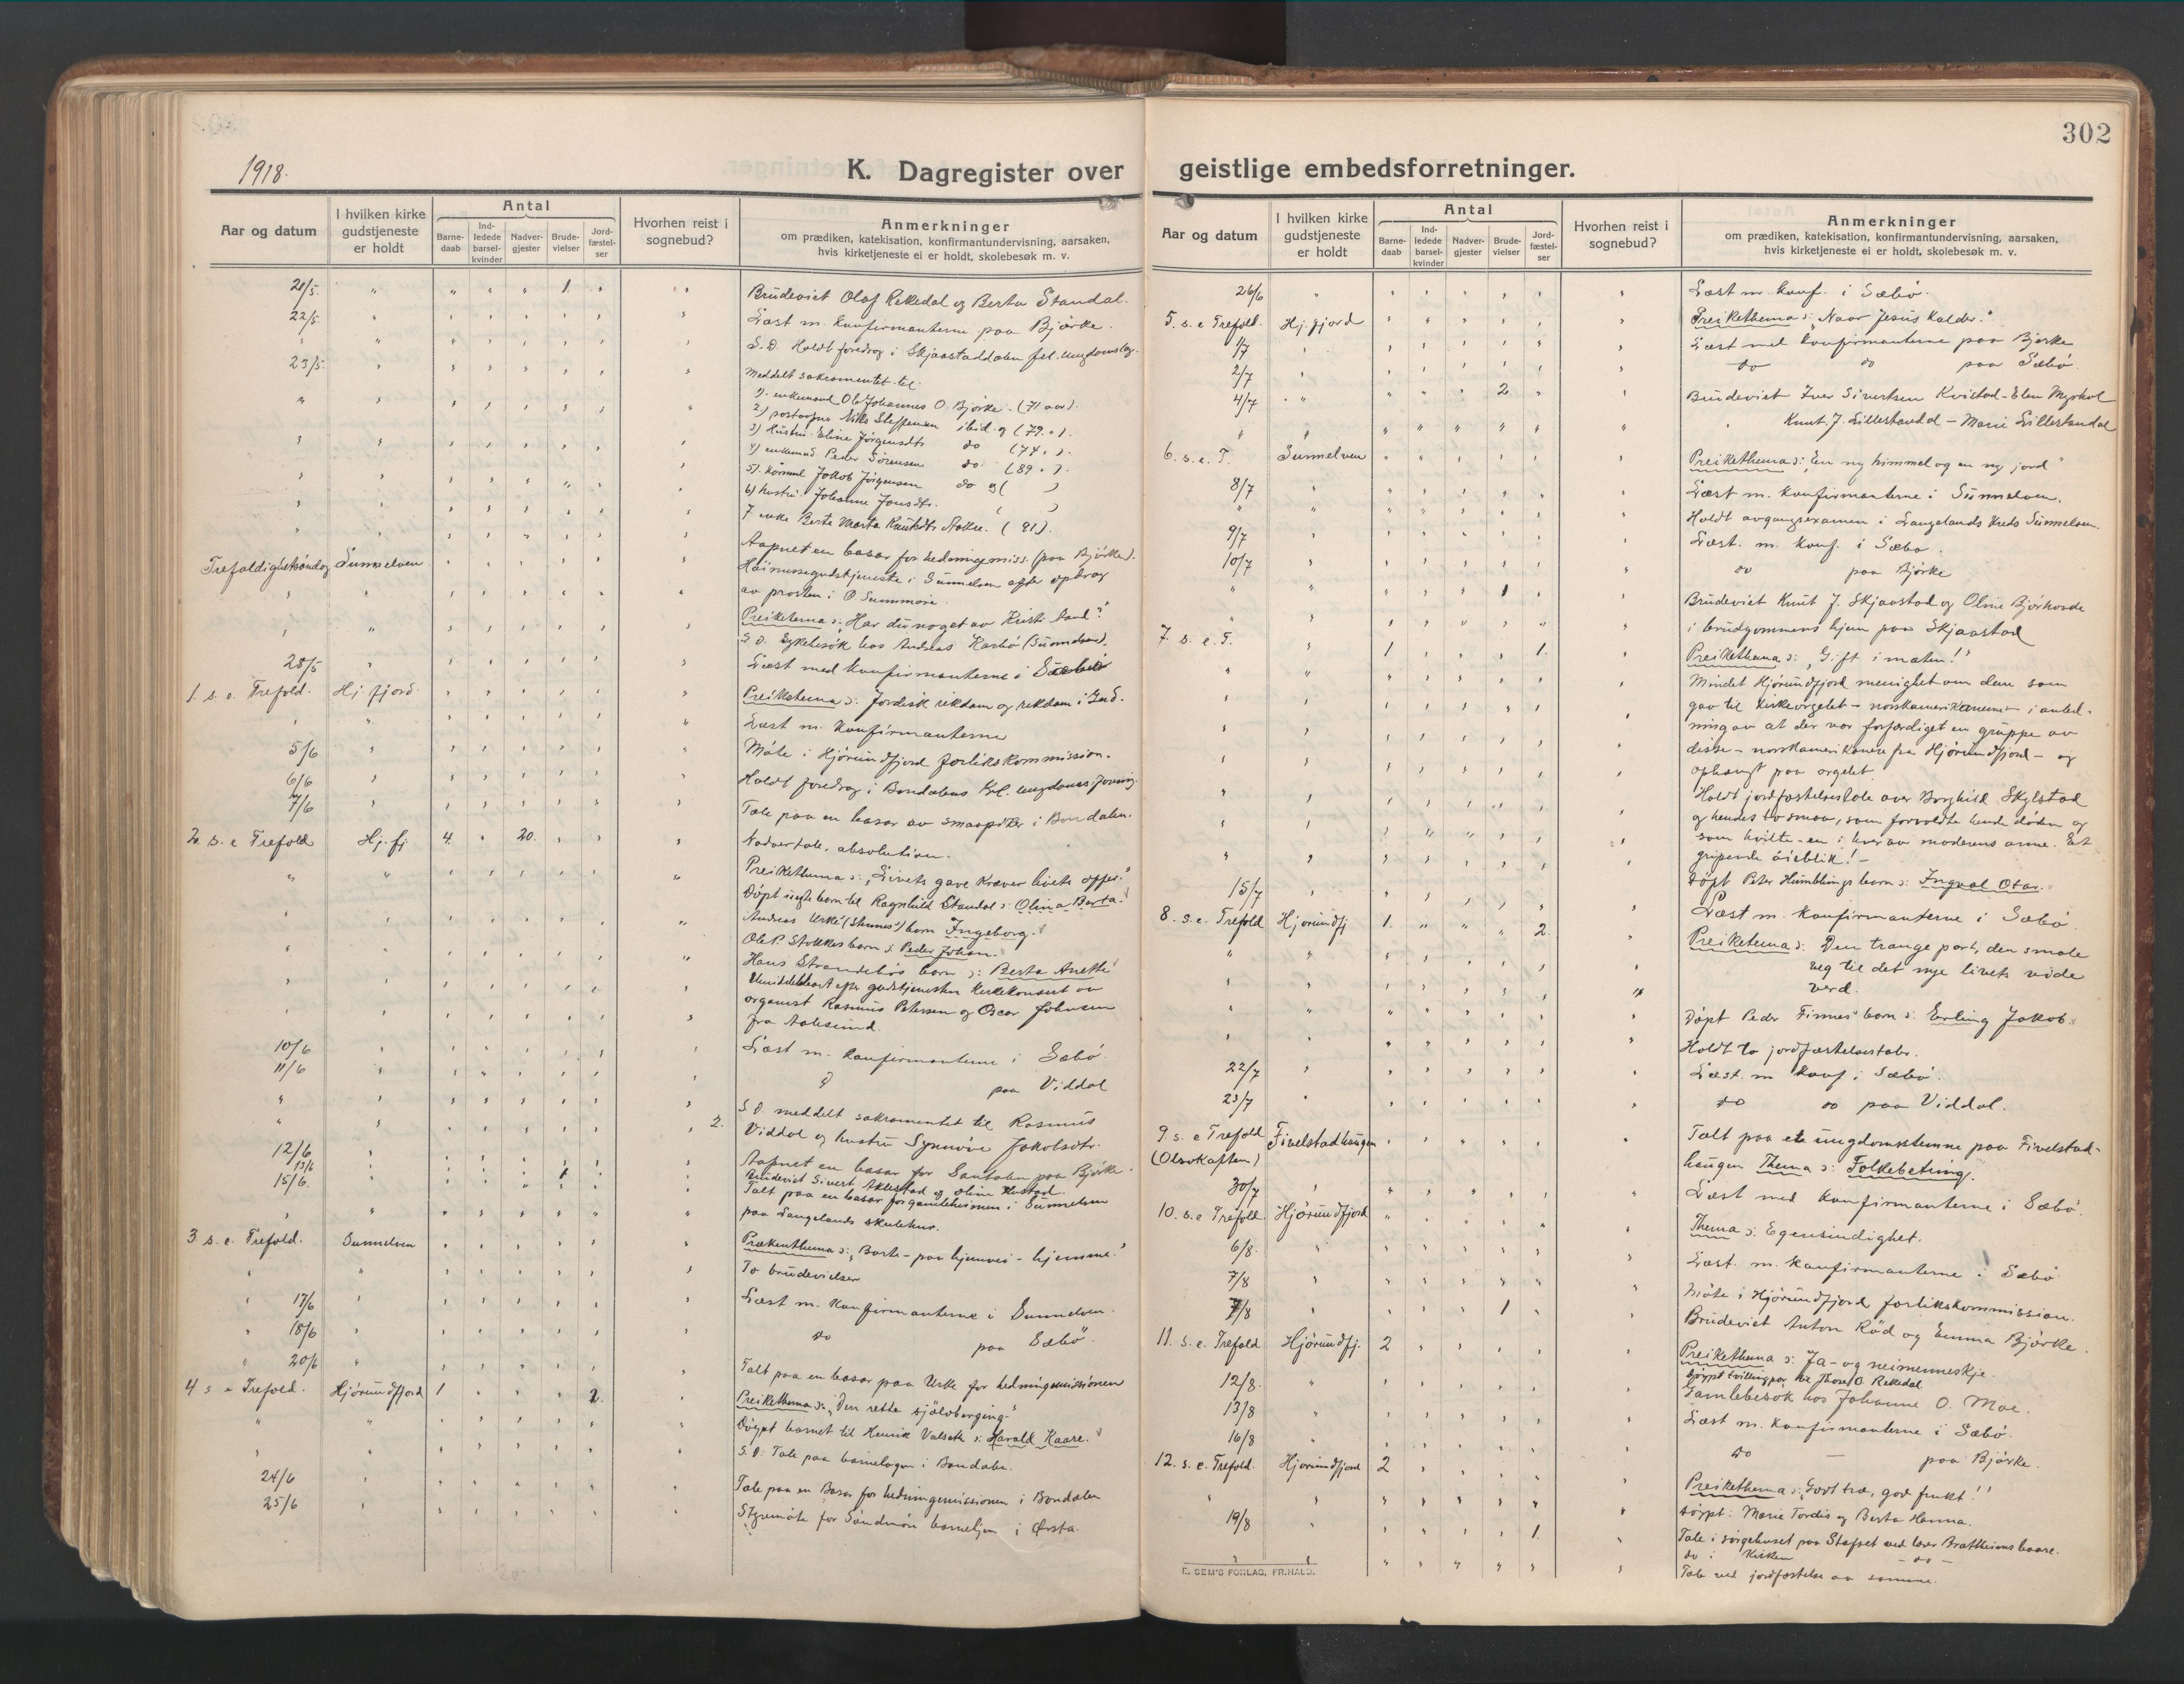 302
1918.
K. Dagregister over geistlige embedsforretninger.
Aar og datum
I hvilken kirke gudstjeneste er holdt
Antal
Barnedaab
Indledede barselkvinder
Nadvergjester
Brudevielser
Jordfæstelser
Hvorhen reist i sognebud?
Anmerkninger
om prædiken, katekisation, konfirmantundervisning, aarsaken,
hvis kirketjeneste ei er holdt, skolebesøk m. v.
21/5. " " " " 1. " " Brudeviet Olaf Rekedal og Berta Standal.
22/5. Læst m. konfirmanterne paa Bjørke.
S. D. Holdt foredrag i Skjaastaddalen
23/5. Meddelt sakramentet til
1). enkemand Ole Johannes O. Bjørke. (71 aar).
2) Nils Steffensen ibid. og (79 " ).
3) Hustru Eline Jørgensdtr do (74 " ).
4) enkemand Peder Sørensen do. (89 " ).
5). Jakob Jørgensen do og ( )
6) hustru Johanne Jonsdtr. ( )
7. enke Berte Marta Knutsdtr (81).
Aapnet en basar for hedningemiss. (paa Bjørke).
Trefoldighetsøndag Sunnelven Høimessegudstjeneste i Sunnelven efter opdrag
av prosten i S Sunnmøre
Preiketema : "Har du noget av Kristi sand?"
S. D. Sykebesøk hos Andreas (Sunnelven).
28/5 Læst med konfirmanterne i Sæbø
1. s. e. Trefold. Hj. fjord. Preikethema : Jordisk rikdom og rikdom i Gud.
Læst m. konfirmanterne
5/6 Møte i Hjørundfjord forlikskommission.
6/6 Holdt foredrag i Bondalens
7/6 Tale paa en basar av smaapiker i Bondalen.
2. s. e Trefold Hj. fj 4. " 20. Nadvertale, absolution.
Preikethema : "Livets gave kræver livets offer."
Døpt barn til Ragnhild Standal : Olina Berta.
Andreas Urke' (Skunes') barn Ingeborg.
Ole P. Stokkes barn : Peder Johan.
Hans Strandebøs barn : Berta Anette
Umiddelbart efter gudstjenesten kirkekonsert av
organist Rasmus Petersen og Oscar Johnsen
fra Aalesund.
10/6 Læst m. konfirmanterne i Sæbø
11/6 paa Viddal
2. S. D. meddelt sakramentet til Rasmus
Viddal og hustru Synnøve Jakobsdtr.
12/6 Aapnet en basar for Santalen paa Bjørke.
13/6 1 Brudeviet Sivert og Oline
15/6. Talt paa en basar for gamleheimen i Sunnelven
paa Langelands skulehus.
3 s. e. Trefold. Sunnelven Prækenthema : "Borte - paa hjemvei - hjemme."
To brudevielser
17/6 Læst m. konfirmanterne i Sunnelven.
18/6 do paa Sæbø.
20/6 Talt paa en basar paa Urke for hedningemissionen
4 s e Trefold. Hjørundfjord 1 2. Preikethema : "Den rette sjølvberging"
Døypt barnet til Henrik Valseth : Harald Kaare.
S. D. Tale paa barnelogen i Bondalen.
24/6 Tale paa en Basar for hedningemissionen i Bondalen
25/6 Styremøte for Søndmøre barneheim i Ørsta.
Aar og datum
I hvilken kirke gudstjeneste er holdt
Antal
Barnedaab
Indledede barselkvinder
Nadvergjester
Brudevielser
Jordfæstelser
Hvorhen reist i sognebud?
Anmerkninger
om prædiken, katekisation, konfirmantundervisning, aarsaken,
hvis kirketjeneste ei er holdt, skolebesøk m. v.
26/6 Læst m. konf. i Sæbø.
5. s. e Trefold. Hj. fjord Preikethema : "Naar Jesus kalder."
1/7 Læst med konfirmanterne paa Bjørke
2/7 do do paa Sæbø.
4/7 2 Brudeviet Iver Sivertsen Kvistad - Elen Myrhol
Knut J. Lillestandal - Marie Lillestandal
6. s. e. T. Sunnelven Preikethema : "En ny himmel og en ny jord"
8/7 Læst m. konfirmanterne i Sunnelven.
Holdt avgangsexamen i Langelands kreds Sunnelven.
9/7 Læst. m. konf. i Sæbø.
10/7 do paa Bjørke
1 Brudeviet Knut J. Skjaastad og Oline
i brudgommens hjem paa Skjaastad
7. s. e. T. 1. 1. Preikethema : "Gift i maten!"
Mindet Hjørundfjord menighet om dem som
gav til kirkeorgelet - norskamerikanerne - i anled-
ning av at der var forfærdiget en gruppe av
disse - norskamerikanere fra Hjørundfjord - og
ophængt paa orgelet.
Holdt jordfæstelsestale over Borghild Skylstad
og hendes to smaa, som forvoldte hende døden og
som hvilte - en i hver av moderens arme. Et
gripende øieblik! -
Døpt Peter Humblings barn : Ingval Otar.
15/7 Læst m. konfirmanterne i Sæbø
8. s. e. Trefold Hjørundfj 1. 2. Preiketema : Den trange port, den smale
veg til det nye livets vide
verd.
Døpt Peder Finnes' barn : Erling Jakob.
Holdt to jordfæstelsestaler.
22/7 Læst. m konf i Sæbø.
23/7 do do paa Viddal.
9. s. e Trefold Fivelstadhaugen
(Olsokaften) Talt paa et ungdomsstemne paa Fivelstad-
haugen Thema : Folkebetring.
30/7 Læst med konfirmanterne i Sæbø.
10. s. e Trefold. Hjørundfjord Thema : Egensindighet.
6/8. Læst. m. konfirmanterne i Sæbø
7/8 Møte i Hjørundfjord forlikskommission.
/8 1 Brudeviet Anton Rød og Emma Bjørke.
11. s. e. Trefold Hjørundfj. 2 Preikethema : Ja - og neimenneskje.
Døypt tvillingpar til Thore O. Rekedal
12/8. Gamlebesøk hos Johanne O. Moe.
13/8 Læst m. konfirmanterne i Sæbø.
16/8 do — paa Bjørke.
12. s. e. Trefold. Hjørundfjord 2 Preikethema : "Godt træ, god frukt!"
Døypt: Marie Tordis og Berta Hanna.
19/8 1. Tale i sørgehuset paa Stafset ved lærer Brattheims baare.
do i Kirken — do —
Tale ved jordfæstelse av samme.
E. SEM'S FORLAG, FR.HALD.